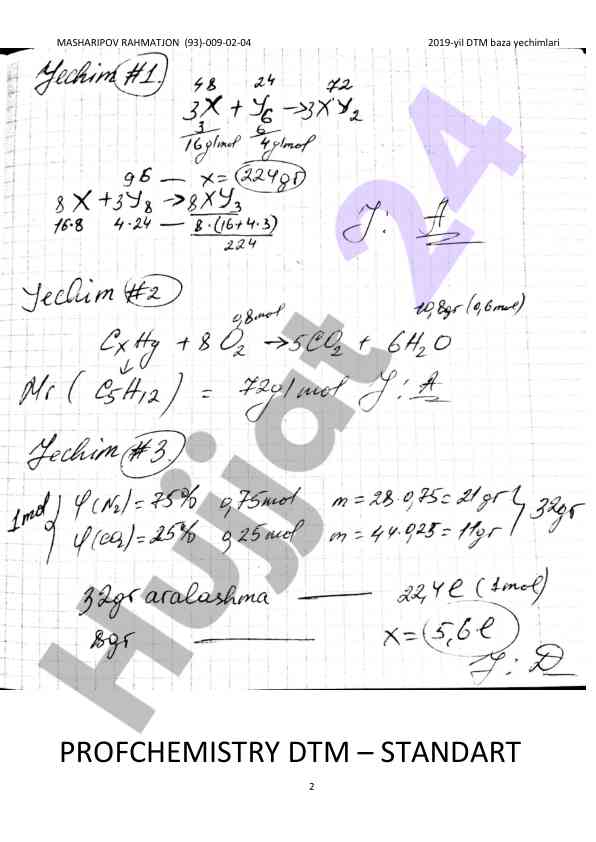 MASHARIPOV RAHMATJON (93)-009-02-04 2019-yil DTM baza yechimlari
Yechim #1.
48 24 72
3X + Y6 → 3XY2
3 6
16g/mol 4g/mol
96 — x = 224gr
8X + 3Y8 → 8XY3
16·8 4·24 — 8·(16+4·3)
224
J: A
Yechim #2
0,8mol 10,8gr (0,6mol)
CxHy + 8O2 → 5CO2 + 6H2O
Mr (C5H12) = 72g/mol J: A
Yechim #3.
1mol φ(N2) = 75% 0,75mol m = 28·0,75 = 21gr 32gr
φ(CO2) = 25% 0,25mol m = 44·0,25 = 11gr
32gr aralashma — 22,4l (1mol)
8gr — x = 5,6l
J: D
Hujjat 24
PROFCHEMISTRY DTM – STANDART
2